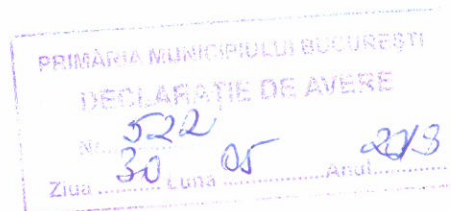 PRIMĂRIA MUNICIPIULUI BUCUREȘTI
DECLARAȚIE DE AVERE
Nr. 522
Ziua 30 Luna 05 Anul 2013